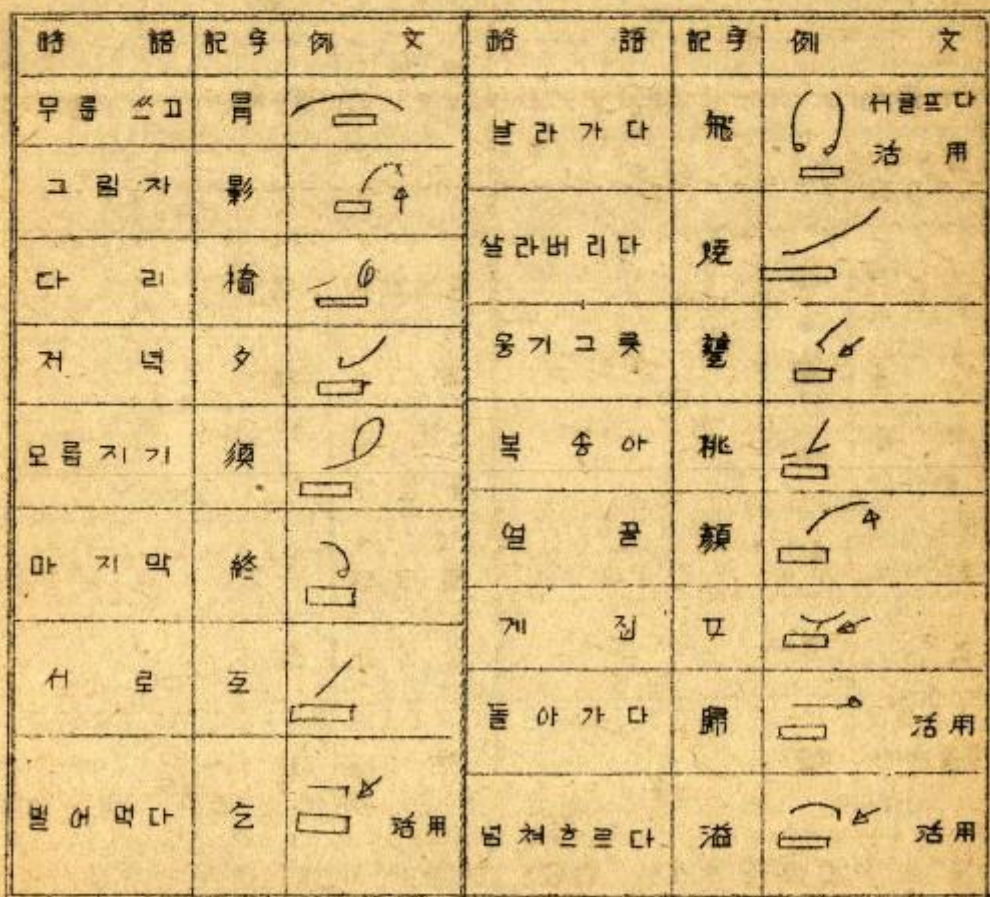 略 語 記字 例 文
무릅 쓰고 冒
그림자 影
다 리 橋
저 녁 夕
모름지기 須
마지막 終
서 로 互
빌어먹다 乞 活用
略 語 記字 例 文
날라가다 飛 서글프다
活 用
살라버리다 燒
옹기그릇 甕
복숭아 桃
얼 굴 顔
게 집 女
돌아가다 歸 活用
넘쳐흐르다 溢 活用